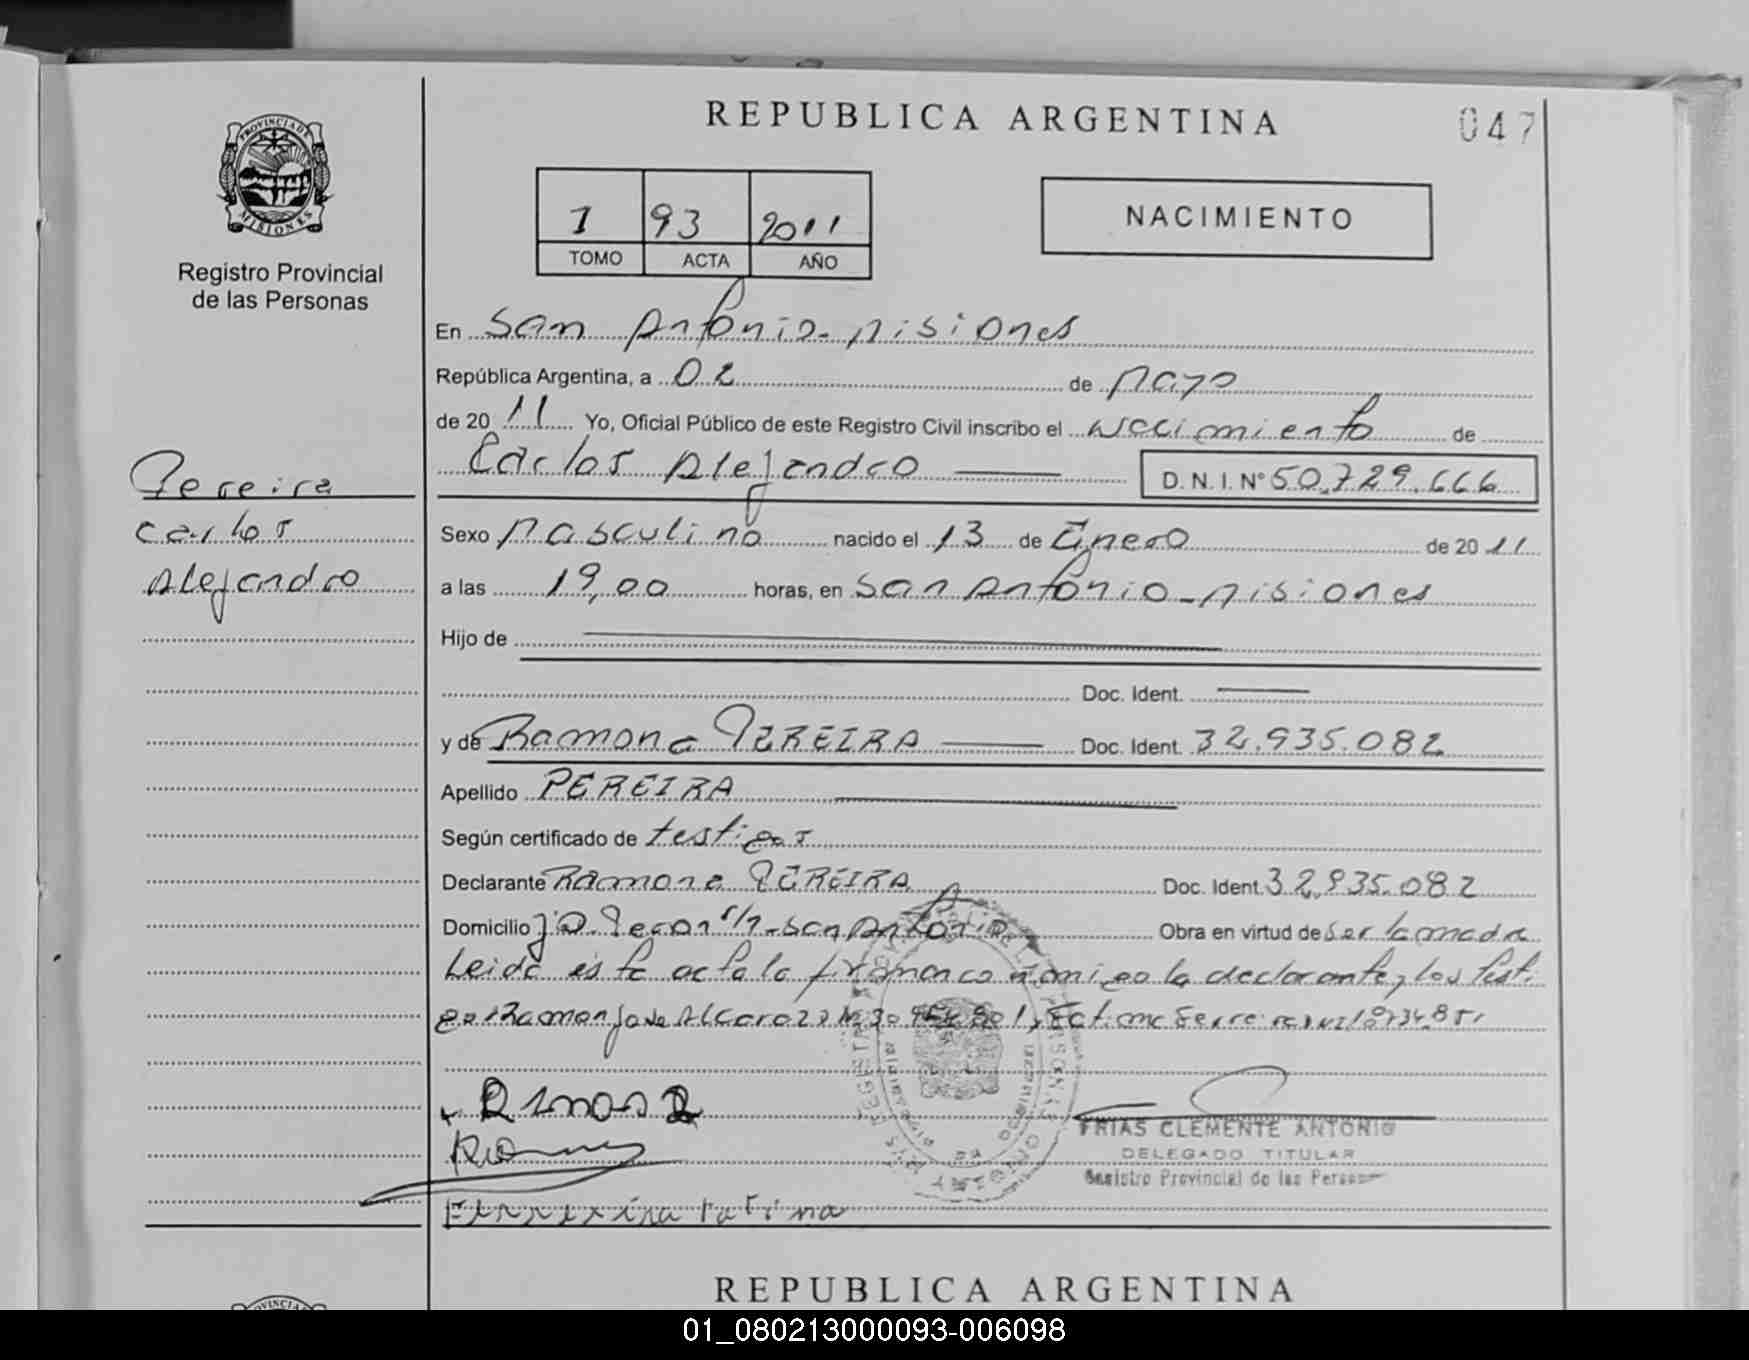 REPUBLICA ARGENTINA
047
PROVINCIA DE MISIONES
Registro Provincial
de las Personas
1 93 2011
TOMO ACTA AÑO
NACIMIENTO
En San Antonio - Misiones
República Argentina, a 02 de Mayo
de 20 11 Yo, Oficial Público de este Registro Civil inscribo el Nacimiento de
Carlos Alejandro D.N.I. Nº 50.729.666
Pereira
Carlos
Alejandro
Sexo Masculino nacido el 13 de Enero de 20 11
a las 19,00 horas, en San Antonio - Misiones
Hijo de
Doc. Ident.
y de Ramona PEREIRA Doc. Ident. 32.935.082
Apellido PEREIRA
Según certificado de testigos
Declarante Ramona PEREIRA Doc. Ident. 32.935.082
Domicilio J.D. Peron s/n - San Antonio Obra en virtud de ser la madre
Leida esta acta la firman conmigo la declarante, los testi
gos Ramon Jose Alcaraz
Ramona
Ferreira Fatima
FRIAS CLEMENTE ANTONIO
DELEGADO TITULAR
Registro Provincial de las Personas
REPUBLICA ARGENTINA
01_080213000093-006098